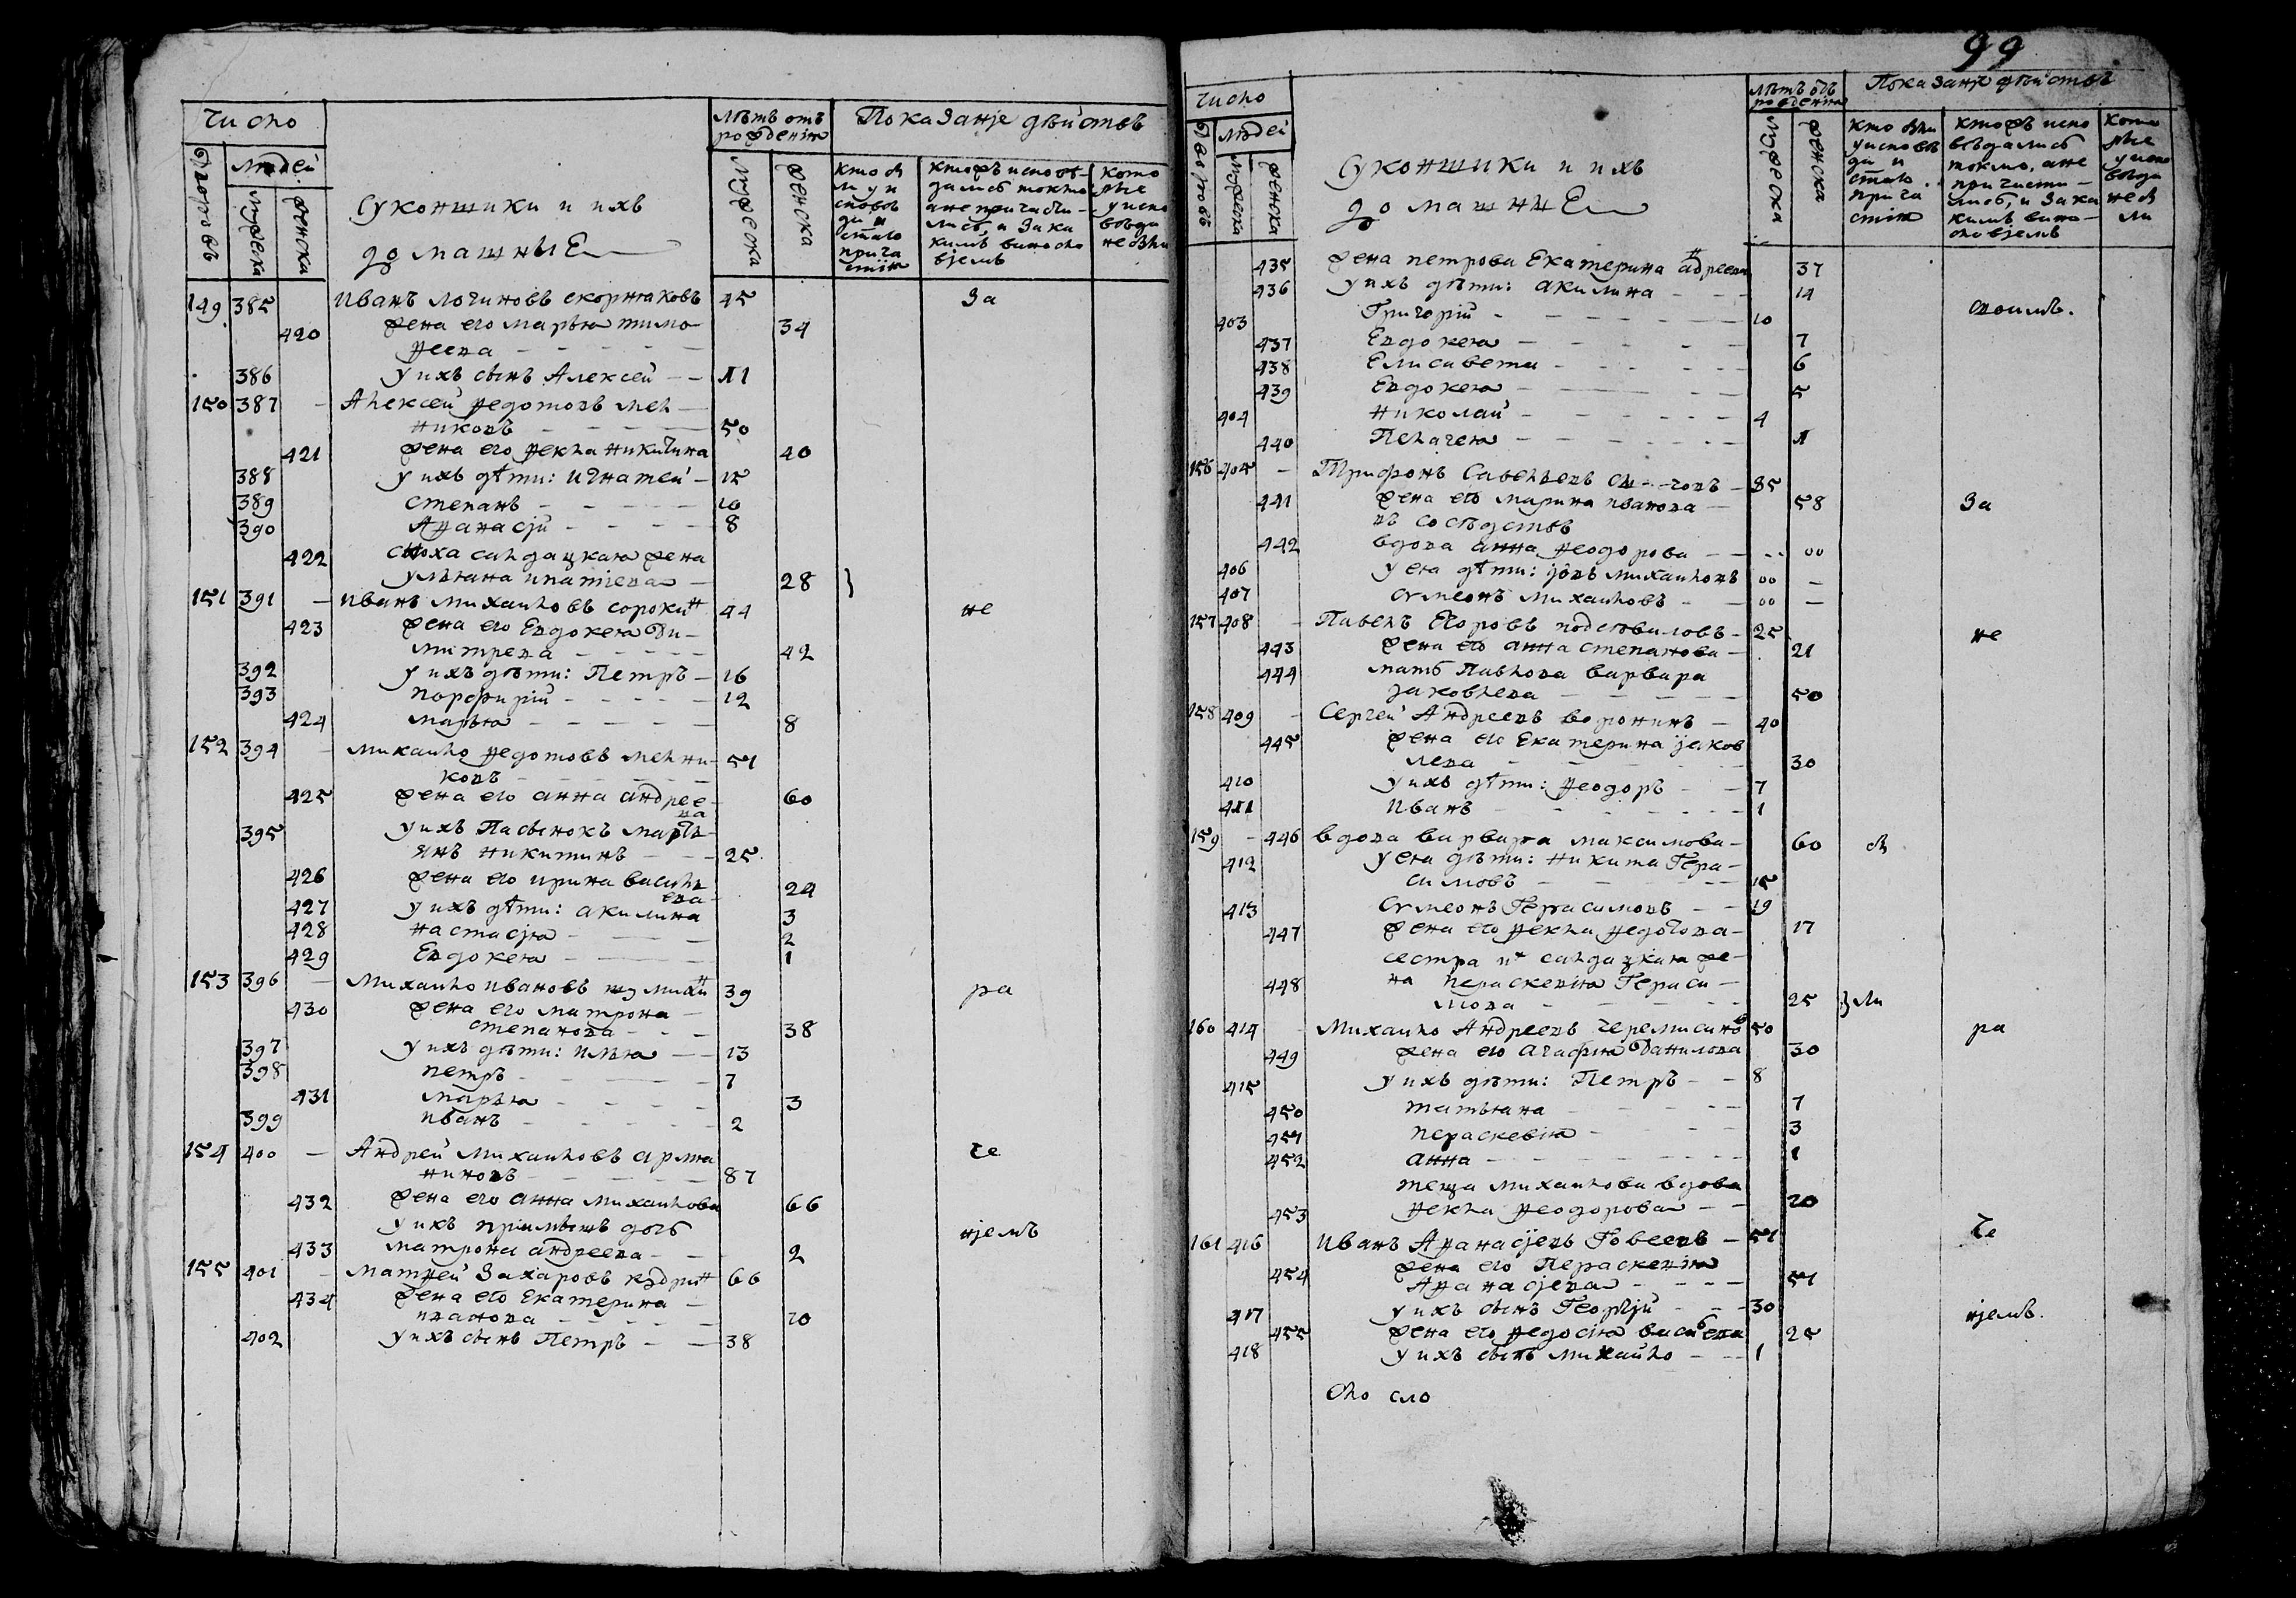 Число
лѣтъ отъ рожденія
Показаніе дѣйствъ
дворовъ
людей
мужеска
женска
Суконщики и ихъ
домашные
мужеска
женска
кто были у исповѣди и стаго причастія
кто жъ исповѣдались токмо а не причастились, и за какимъ винословіемъ
которые у исповѣди не были
149 385 Иванъ Логиновъ скорняковъ 45 За
420 жена его Марья Тимо 34
ѳеева
386 у ихъ сынъ Алексей 11
150 387 Алексей Ѳедотовъ мел
никовъ 50
421 жена его Ѳекла Никитина 40
388 у ихъ дѣти: Игнатей 15
389 Степанъ 10
390 Аѳанасіи 8
422 сноха салдацкая жена
Ульяна Ипатиева 28
151 391 Иванъ Михаиловъ сорокин 44 не
423 жена его Евдокея Ди
митрева 42
392 у ихъ дѣти: Петръ 16
393 Порфирій 12
424 Марья 8
152 394 Михаило Ѳедотовъ мелни 51
ковъ
425 жена его Анна Андрее 60
ва
395 у ихъ пасынокъ Марть
янъ Никитинъ 25
426 жена его Ирина Василь 24
ева
427 у ихъ дѣти: Акилина 3
428 Настасія 2
429 Евдокея 1
153 396 Михаило Ивановъ 39 ра
430 жена его Матрона
Степанова 38
397 у ихъ дѣти: Илья 13
398 Петръ 7
431 Марья 3
399 Иванъ 2
154 400 Андрей Михаиловъ армя че
ниновъ 87
432 жена его Анна Михаилова 66
у ихъ приимышъ дочь ніемъ
433 Матрона Андреева 2
155 401 Матѳей Захаровъ кудрин 66
434 жена его Екатерина
Иванова 70
402 у ихъ сынъ Петръ 38
99
Число
лѣтъ отъ рожденія
Показаніе дѣйствъ
дворовъ
людей
мужеска
женска
Суконщики и ихъ
домашние
мужеска
женска
кто были у исповѣди и стаго причастія
кто жъ исповѣдались токмо, а не причастились, и за какимъ винословіемъ
которые у исповѣди не были
435 жена Петрова Екатерина Андреева 37
436 у ихъ дѣти: Акилина 14
403 Григорій 10 своимъ.
437 Евдокея 7
438 Елисавета 6
439 Евдокея 5
404 Николай 4
440 Пелагея 1
156 405 Трифонъ Савельевъ 85
441 жена его Марина Иванова 58 За
въ соседствѣ
442 вдова Анна Ѳеодорова 00
406 у ея дѣти: Іовъ Михаиловъ 00
407 Сѵмеонъ Михаиловъ 00
157 408 Павелъ Егоровъ подствиловъ 25 не
443 жена его Анна Степанова 21
444 мать Павлова Варвара
Яковлева 50
158 409 Сергей Андреевъ воронинъ 40
445 жена его Екатерина Іаков
лева 30
410 у ихъ дѣти: Ѳеодоръ 7
411 Иванъ 1
159 446 вдова Варвара Максимова 60 бы
412 у ея дѣти: Никита Гера
симовъ 15
413 Сѵмеонъ Герасимовъ 19
447 жена его Ѳекла Ѳедотова 17
сестра их салдацкая же
448 на Параскевия Гераси
мова 25 ли
160 414 Михаило Андреевъ черемисинов 50 ра
449 жена его Агафия Данилова 30
415 у ихъ дѣти: Петръ 8
450 Татьяна 7
451 Параскевия 3
452 Анна 1
теща Михаилова вдова
453 Ѳекла Ѳеодорова 70
161 416 Иванъ Аѳанасіевъ Говеевъ 51 че
454 жена его Параскевия
Аѳанасіева 51
417 у ихъ сынъ Георгіи 30 ніемъ.
455 жена его Ѳедосія Васильева 25
418 у ихъ сынъ Михаило 1